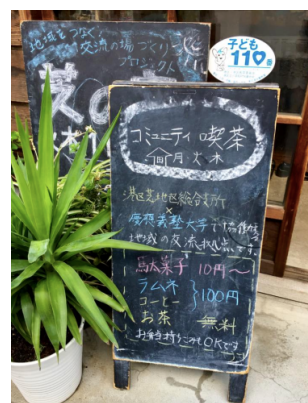 地域をつなぐ
交流の場づくり
プロジェクト
芝の
子ども
110番
コミュニティ喫茶
月火木
港区芝地区総合支所
×
慶應義塾大学で協働
地域の交流拠点です。
駄菓子 10円〜
ラムネ
コーヒー }100円
お茶 無料
お弁当持ちこみもOKです